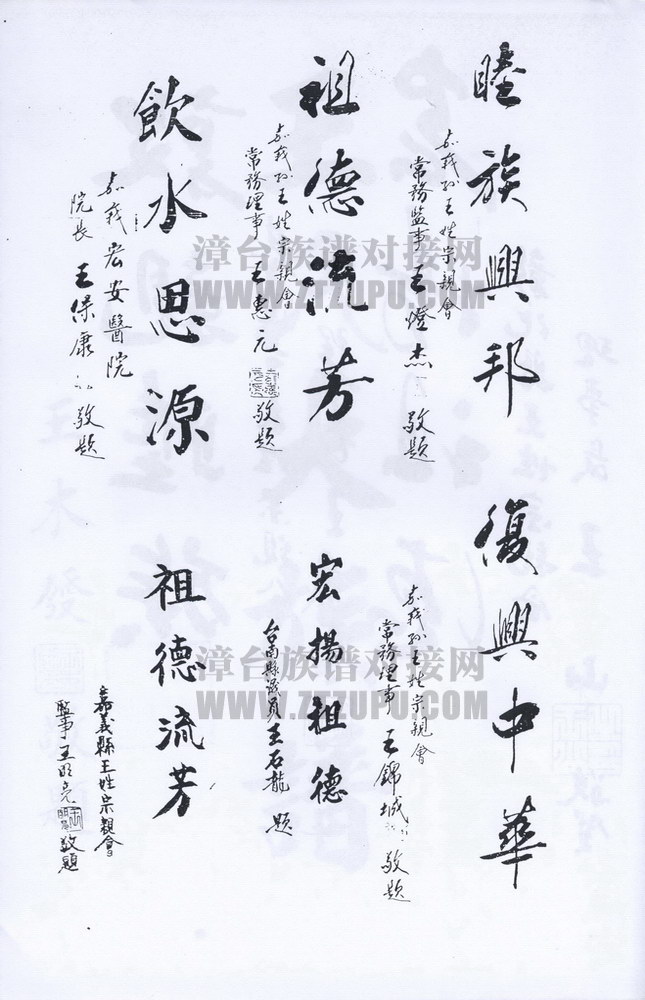 睦族興邦
嘉義縣王姓宗親會
常務監事王燈杰敬題
祖德流芳
嘉義縣王姓宗親會
常務理事王惠元敬題
飲水思源
嘉義宏安醫院
院長王保康敬題
復興中華
嘉義縣王姓宗親會
常務理事王錦城敬題
宏揚祖德
台南縣議員王石龍題
祖德流芳
嘉義縣王姓宗親會
監事王明亮敬題
漳台族谱对接网
WWW.ZTZUPU.COM
漳台族谱对接网
WWW.ZTZUPU.COM